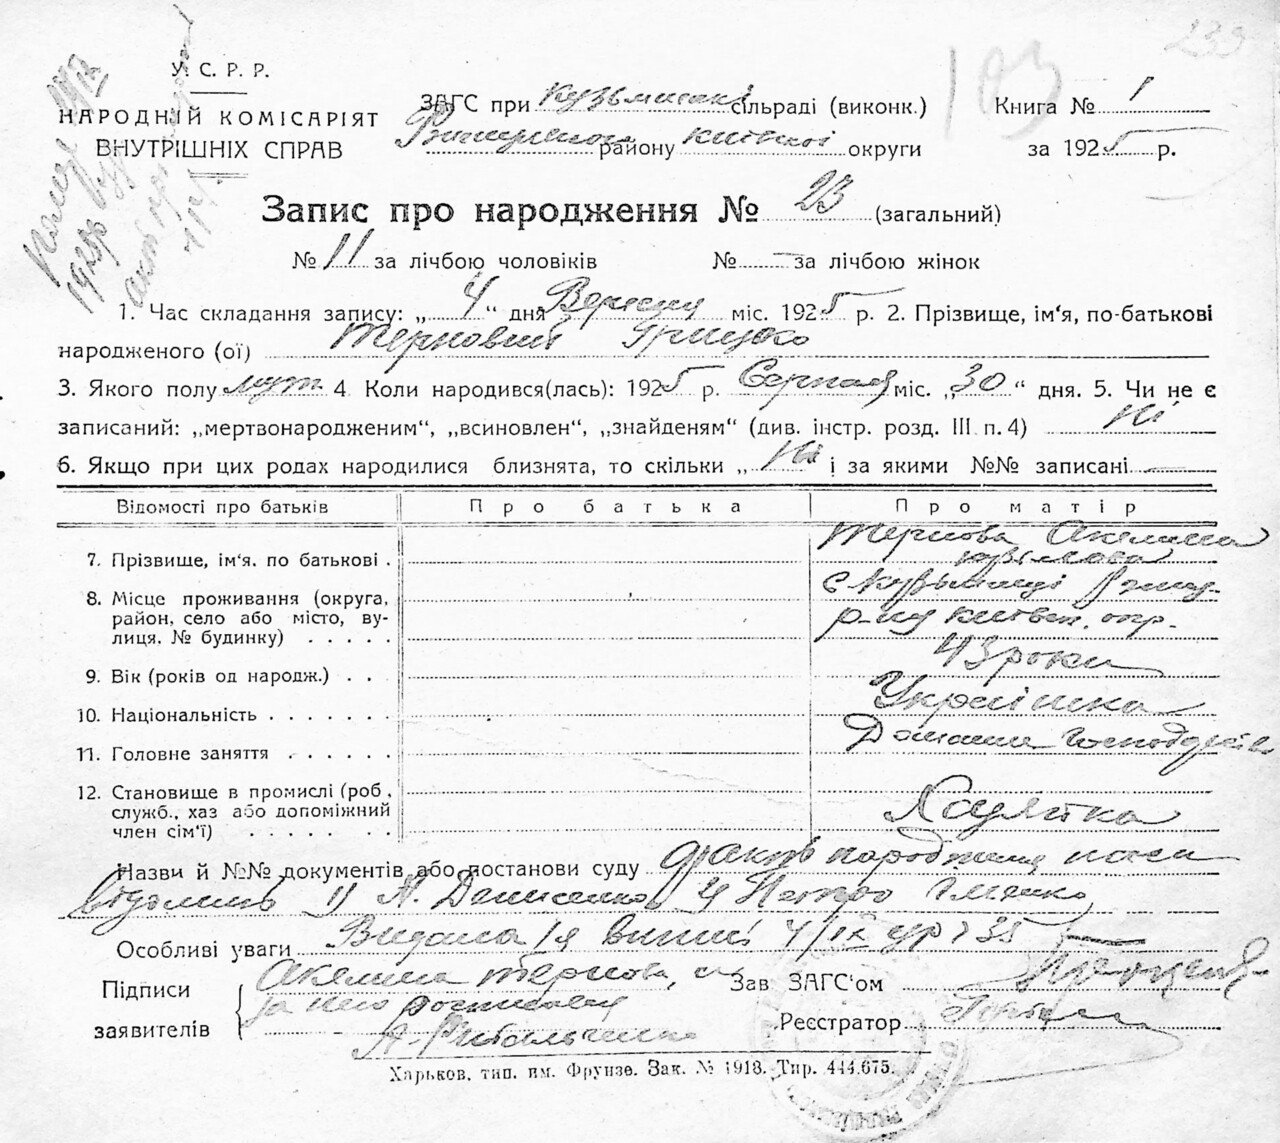 239
У. С. Р. Р.
НАРОДНІЙ КОМІСАРІЯТ
ВНУТРІШНІХ СПРАВ
ЗАГС при сільраді (виконк.)
району київської округи
Книга № 1
за 1925 р.
103
Запис про народження № 23 (загальний)
№ 11 за лічбою чоловіків № — за лічбою жінок
1. Час складання запису: „ 4 “ дня Вересня міс. 1925 р. 2. Прізвище, ім‘я, по-батькові
народженого (ої) Терновий Грицько
3. Якого полу муж. 4. Коли народився(лась): 1925 р. Серпня міс. „ 30 “ дня. 5. Чи не є
записаний: „мертвонародженим“, „всиновлен“, „знайденям“ (див. інстр. розд. III п. 4) Ні
6. Якщо при цих родах народилися близнята, то скільки „ Ні і за якими №№ записані —
Відомості про батьків Про батька Про матір
7. Прізвище, ім‘я, по батькові . Тернова Акелина
8. Місце проживання (округа,
район, село або місто, ву-
лиця, № будинку) . . . . .
р-ну київськ. окр.
9. Вік (років од народж.) . . . 43 роки
10. Національність . . . . . . . Українка
11. Головне заняття . . . . . . Домашнє господарство
12. Становище в промислі (роб,
служб., хаз або допоміжний
член сім‘ї) . . . . . . Хазяйка
Назви й №№ документів або постанови суду факт народження
1) А. Денисенко 2)
Особливі уваги Видана 4/IX 35
Підписи
заявителів
Акелина Тернова,
за неї росписався
А. Рибальченко
Зав ЗАГС‘ом
Реєстратор
Харьков, тип. им. Фрунзе. Зак. № 1918. Тир. 444.675.